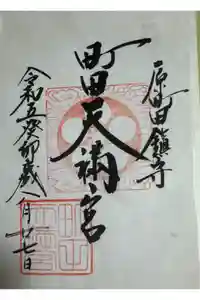 原町田鎮守
町田天満宮
令和五癸卯歳八月廿七日